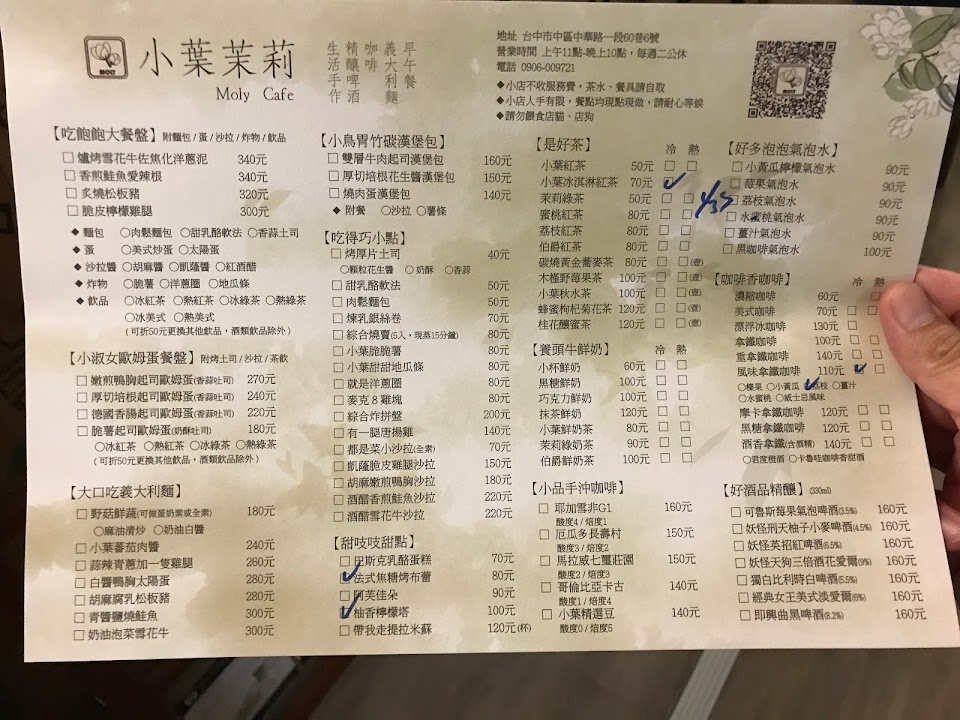 MOLY
小葉茉莉
Moly Cafe
早午餐
義大利麵
咖啡
精釀啤酒
生活手作
地址 台中市中區中華路一段60巷6號
營業時間 上午11點-晚上10點，每週二公休
電話 0906-009721
◆小店不收服務費，茶水、餐具請自取
◆小店人手有限，餐點均現點現做，請耐心等候
◆請勿餵食店貓、店狗
【吃飽飽大餐盤】附麵包/蛋/沙拉/炸物/飲品
□ 爐烤雪花牛佐焦化洋蔥泥 340元
□ 香煎鮭魚愛辣根 340元
□ 炙燒松板豬 320元
□ 脆皮檸檬雞腿 300元
◆ 麵包 ○肉鬆麵包 ○甜乳酪軟法 ○香蒜土司
◆ 蛋 ○美式炒蛋 ○太陽蛋
◆ 沙拉醬 ○胡麻醬 ○凱薩醬 ○紅酒醋
◆ 炸物 ○脆薯 ○洋蔥圈 ○地瓜條
◆ 飲品 ○冰紅茶 ○熱紅茶 ○冰綠茶 ○熱綠茶
○冰美式 ○熱美式
(可折50元更換其他飲品，酒類飲品除外)
【小淑女歐姆蛋餐盤】附烤土司/沙拉/茶飲
□ 嫩煎鴨胸起司歐姆蛋(香蒜吐司) 270元
□ 厚切培根起司歐姆蛋(香蒜吐司) 240元
□ 德國香腸起司歐姆蛋(香蒜吐司) 220元
□ 脆薯起司歐姆蛋(奶酥吐司) 180元
○冰紅茶 ○熱紅茶 ○冰綠茶 ○熱綠茶
(可折50元更換其他飲品，酒類飲品除外)
【大口吃義大利麵】
□ 野菇鮮蔬(可做蛋奶素或全素) 180元
○麻油清炒 ○奶油白醬
□ 小葉蕃茄肉醬 240元
□ 蒜辣青蔥加一隻雞腿 260元
□ 白醬鴨胸太陽蛋 280元
□ 胡麻腐乳松板豬 280元
□ 青醬鹽燒鮭魚 300元
□ 奶油泡菜雪花牛 300元
【小鳥胃竹碳漢堡包】
□ 雙層牛肉起司漢堡包 160元
□ 厚切培根花生醬漢堡包 150元
□ 燒肉蛋漢堡包 140元
◆ 附餐 ○沙拉 ○薯條
【吃得巧小點】
□ 烤厚片土司 40元
○顆粒花生醬 ○奶酥 ○香蒜
□ 甜乳酪軟法 50元
□ 肉鬆麵包 50元
□ 煉乳銀絲卷 70元
□ 綜合燒賣(5入，現蒸15分鐘) 80元
□ 小葉脆脆薯 80元
□ 小葉甜甜地瓜條 80元
□ 就是洋蔥圈 80元
□ 麥克8雞塊 80元
□ 綜合炸拼盤 200元
□ 有一腿唐揚雞 140元
□ 都是菜小沙拉(全素) 70元
□ 凱薩脆皮雞腿沙拉 150元
□ 胡麻嫩煎鴨胸沙拉 180元
□ 酒醋香煎鮭魚沙拉 220元
□ 酒醋雪花牛沙拉 220元
【甜吱吱甜點】
□ 巴斯克乳酪蛋糕 70元
□ 法式焦糖烤布蕾 80元
□ 阿芙佳朵 90元
□ 柚香檸檬塔 100元
□ 帶我走提拉米蘇 120元(杯)
【是好茶】 冷 熱
小葉紅茶 50元 □ □
小葉冰淇淋紅茶 70元 □
茉莉綠茶 50元 □ □
蜜桃紅茶 80元 □ □
荔枝紅茶 80元 □ □
伯爵紅茶 80元 □ □
碳燒黃金蕎麥茶 80元 □ □(壺)
木槿野莓果茶 100元 □ □(壺)
小葉秋水茶 100元 □ □(壺)
蜂蜜枸杞菊花茶 120元 □ □(壺)
桂花釀蜜茶 120元 □ □(壺)
【饕頭牛鮮奶】 冷 熱
小杯鮮奶 60元 □ □
黑糖鮮奶 100元 □ □
巧克力鮮奶 100元 □ □
抹茶鮮奶 120元 □ □
小葉鮮奶茶 80元 □ □
茉莉綠奶茶 90元 □ □
伯爵鮮奶茶 100元 □ □
【小品手沖咖啡】
□ 耶加雪非G1 160元
酸度4/焙度1
□ 厄瓜多長壽村 150元
酸度3/焙度2
□ 馬拉威七蠆莊園 150元
酸度2/焙度3
□ 哥倫比亞卡古 140元
酸度1/焙度4
□ 小葉精選豆 140元
酸度0/焙度5
【好多泡泡氣泡水】
□ 小黃瓜檸檬氣泡水 90元
□ 莓果氣泡水 90元
□ 荔枝氣泡水 90元
□ 水蜜桃氣泡水 90元
□ 薑汁氣泡水 90元
□ 黑咖啡氣泡水 100元
【咖啡香咖啡】 冷 熱
濃縮咖啡 60元 □
美式咖啡 70元 □ □
漂浮冰咖啡 130元 □
拿鐵咖啡 100元 □ □
重拿鐵咖啡 140元 □ □
風味拿鐵咖啡 110元 □ □
○榛果 ○小黃瓜 ○荔枝 ○薑汁
○水蜜桃 ○威士忌風味
摩卡拿鐵咖啡 120元 □ □
黑糖拿鐵咖啡 120元 □ □
酒香拿鐵(含酒精) 140元 □ □
○君度橙酒 ○卡魯哇咖啡香甜酒
【好酒品精釀】(330ml)
□ 可魯斯莓果氣泡啤酒(3.5%) 160元
□ 妖怪刑天柚子小麥啤酒(4.5%) 160元
□ 妖怪英招紅啤酒(6.5%) 160元
□ 妖怪天狗三倍酒花愛爾(9%) 160元
□ 獨白比利時白啤酒(5.5%) 160元
□ 經典女王美式淡愛爾(6%) 160元
□ 即興曲黑啤酒(8.2%) 160元